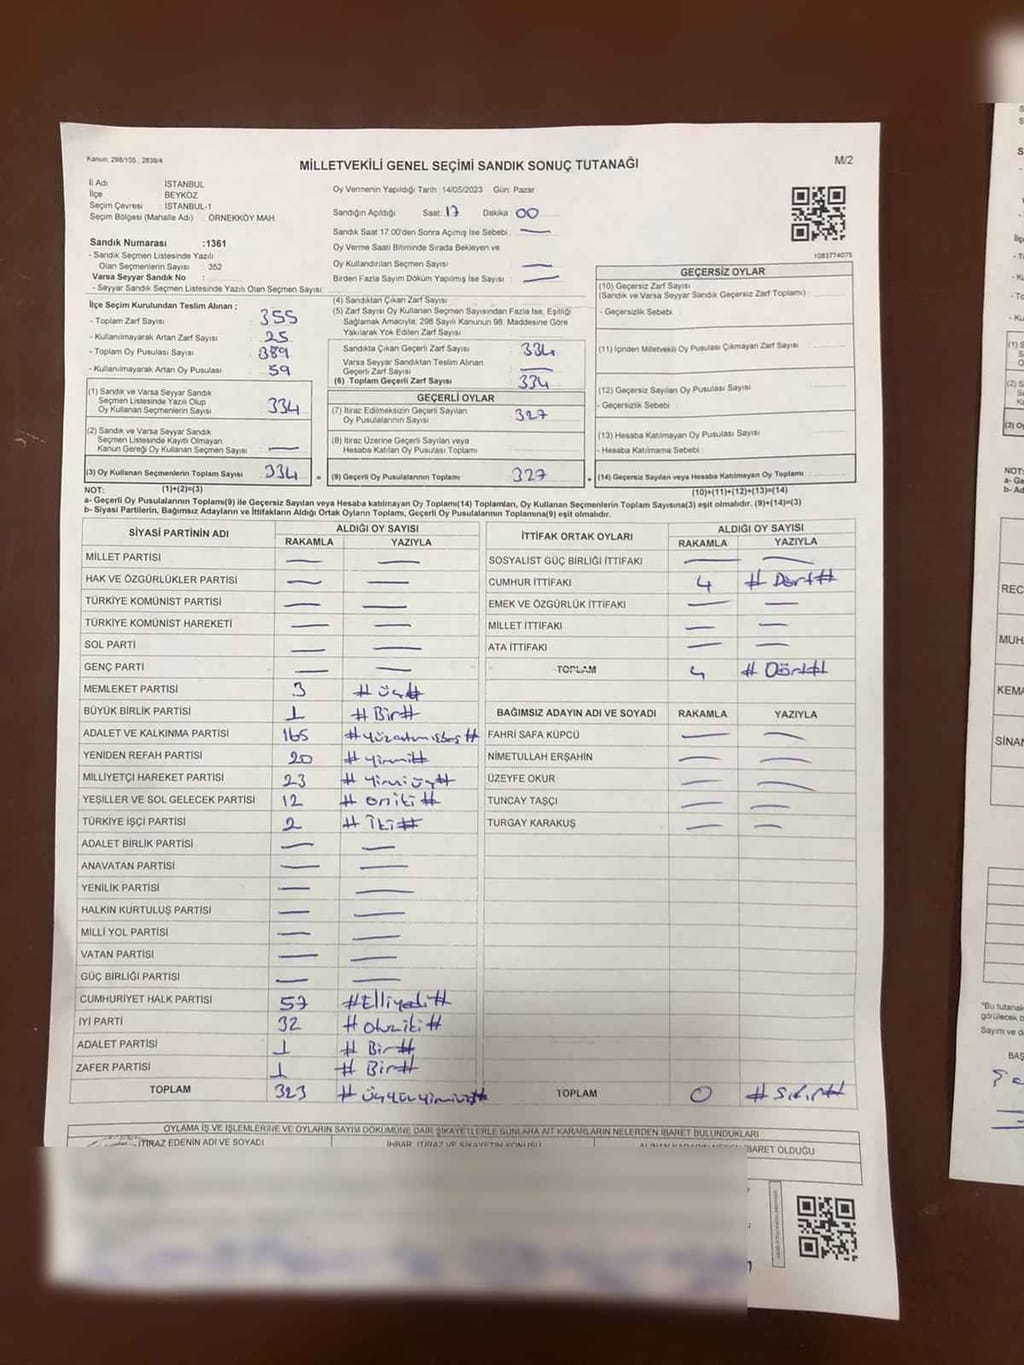 Kanun: 298/105 , 2839/4
MİLLETVEKİLİ GENEL SEÇİMİ SANDIK SONUÇ TUTANAĞI
M/2
İl Adı İSTANBUL
İlçe BEYKOZ
Seçim Çevresi : İSTANBUL-1
Seçim Bölgesi (Mahalle Adı) : ÖRNEKKÖY MAH.
Sandık Numarası :1361
- Sandık Seçmen Listesinde Yazılı
Olan Seçmenlerin Sayısı : 352
Varsa Seyyar Sandık No :
- Seyyar Seçmen Listesinde Yazılı Olan Seçmen Sayısı
Oy Vermenin Yapıldığı Tarih : 14/05/2023 Gün: Pazar
Sandığın Açıldığı Saat: 17 Dakika : 00
Sandık Saat 17.00'den Sonra Açımış İse Sebebi : —
Oy Verme Saati Bitiminde Sırada Bekleyen ve
Oy Kullandırılan Seçmen Sayısı —
Birden Fazla Sayım Döküm Yapılmış İse Sayısı : —
1083774075
İlçe Seçim Kurulundan Teslim Alınan ;
- Toplam Zarf Sayısı 355
- Kullanılmayarak Artan Zarf Sayısı 25
- Toplam Oy Pusulası Sayısı 389
- Kullanılmayarak Artan Oy Pusulası 59
(1) Sandık ve Varsa Seyyar Sandık
Seçmen Listesinde Yazılı Olup
Oy Kullanan Seçmenlerin Sayısı 334
(2) Sandık ve Varsa Seyyar Sandık
Seçmen Listesinde Kayıtlı Olmayan
Kanun Gereği Oy Kullanan Seçmen Sayısı —
(3) Oy Kullanan Seçmenlerin Toplam Sayısı 334
(4) Sandıktan Çıkan Zarf Sayısı
(5) Zarf Sayısı Oy Kullanan Seçmen Sayısından Fazla İse, Eşitliği
Sağlamak Amacıyla; 298 Sayılı Kanunun 98. Maddesine Göre
Yakılarak Yok Edilen Zarf Sayısı
Sandıkta Çıkan Geçerli Zarf Sayısı 334
Varsa Seyyar Sandıktan Teslim Alınan
Geçerli Zarf Sayısı —
(6) Toplam Geçerli Zarf Sayısı 334
GEÇERLİ OYLAR
(7) İtiraz Edilmeksizin Geçerli Sayılan
Oy Pusulalarının Sayısı 327
(8) İtiraz Üzerine Geçerli Sayılan veya
Hesaba Katılan Oy Pusulası Toplamı
= (9) Geçerli Oy Pusulalarının Toplamı 327
GEÇERSİZ OYLAR
(10) Geçersiz Zarf Sayısı
(Sandık ve Varsa Seyyar Sandık Geçersiz Zarf Toplamı)
- Geçersizlik Sebebi
(11) İçinden Milletvekili Oy Pusulası Çıkmayan Zarf Sayısı
(12) Geçersiz Sayılan Oy Pusulası Sayısı
- Geçersizlik Sebebi
(13) Hesaba Katılmayan Oy Pusulası Sayısı
- Hesaba Katılmama Sebebi
+ (14) Geçersiz Sayılan veya Hesaba Katılmayan Oy Toplamı
NOT: (1)+(2)=(3) (10)+(11)+(12)+(13)=(14)
a- Geçerli Oy Pusulalarının Toplamı(9) ile Geçersiz Sayılan veya Hesaba katılmayan Oy Toplamı(14) Toplamları, Oy Kullanan Seçmenlerin Toplam Sayısına(3) eşit olmalıdır. (9)+(14)=(3)
b- Siyasi Partilerin, Bağımsız Adayların ve İttifakların Aldığı Ortak Oyların Toplamı, Geçerli Oy Pusulalarının Toplamına(9) eşit olmalıdır.
SİYASİ PARTİNİN ADI ALDIĞI OY SAYISI
RAKAMLA YAZIYLA
MİLLET PARTİSİ — —
HAK VE ÖZGÜRLÜKLER PARTİSİ — —
TÜRKİYE KOMÜNİST PARTİSİ — —
TÜRKİYE KOMÜNİST HAREKETİ — —
SOL PARTİ — —
GENÇ PARTİ — —
MEMLEKET PARTİSİ 3 # üç #
BÜYÜK BİRLİK PARTİSİ 1 # Bir #
ADALET VE KALKINMA PARTİSİ 165 # yüzatmışbeş #
YENİDEN REFAH PARTİSİ 20 # yirmi #
MİLLİYETÇİ HAREKET PARTİSİ 23 # yirmiüç #
YEŞİLLER VE SOL GELECEK PARTİSİ 12 # oniki #
TÜRKİYE İŞÇİ PARTİSİ 2 # İki #
ADALET BİRLİK PARTİSİ — —
ANAVATAN PARTİSİ — —
YENİLİK PARTİSİ — —
HALKIN KURTULUŞ PARTİSİ — —
MİLLİ YOL PARTİSİ — —
VATAN PARTİSİ — —
GÜÇ BİRLİĞİ PARTİSİ — —
CUMHURİYET HALK PARTİSİ 57 # Elliyedi #
İYİ PARTİ 32 # otuziki #
ADALET PARTİSİ 1 # Bir #
ZAFER PARTİSİ 1 # Bir #
TOPLAM 323 # Üçyüzyirmiüç #
İTTİFAK ORTAK OYLARI ALDIĞI OY SAYISI
RAKAMLA YAZIYLA
SOSYALİST GÜÇ BİRLİĞİ İTTİFAKI — —
CUMHUR İTTİFAKI 4 # Dört #
EMEK VE ÖZGÜRLÜK İTTİFAKI — —
MİLLET İTTİFAKI — —
ATA İTTİFAKI — —
TOPLAM 4 # Dört #
BAĞIMSIZ ADAYIN ADI VE SOYADI RAKAMLA YAZIYLA
FAHRİ SAFA KÜPCÜ — —
NİMETULLAH ERŞAHİN — —
ÜZEYFE OKUR — —
TUNCAY TAŞÇI — —
TURGAY KARAKUŞ — —
TOPLAM 0 # Sıfır #
OYLAMA İŞ VE İŞLEMLERİNE VE OYLARIN SAYIM DÖKÜMÜNE DAİR ŞİKAYETLERLE BUNLARA AİT KARARLARIN NELERDEN İBARET BULUNDUKLARI
İTİRAZ EDENİN ADI VE SOYADI İHBAR, İTİRAZ VE ŞİKAYETİN KONUSU İBARET OLDUĞU
NOT:
REC
MUH
KEMA
SİNAN
"Bu tutanak
görülecek
Sayım ve
BAŞ